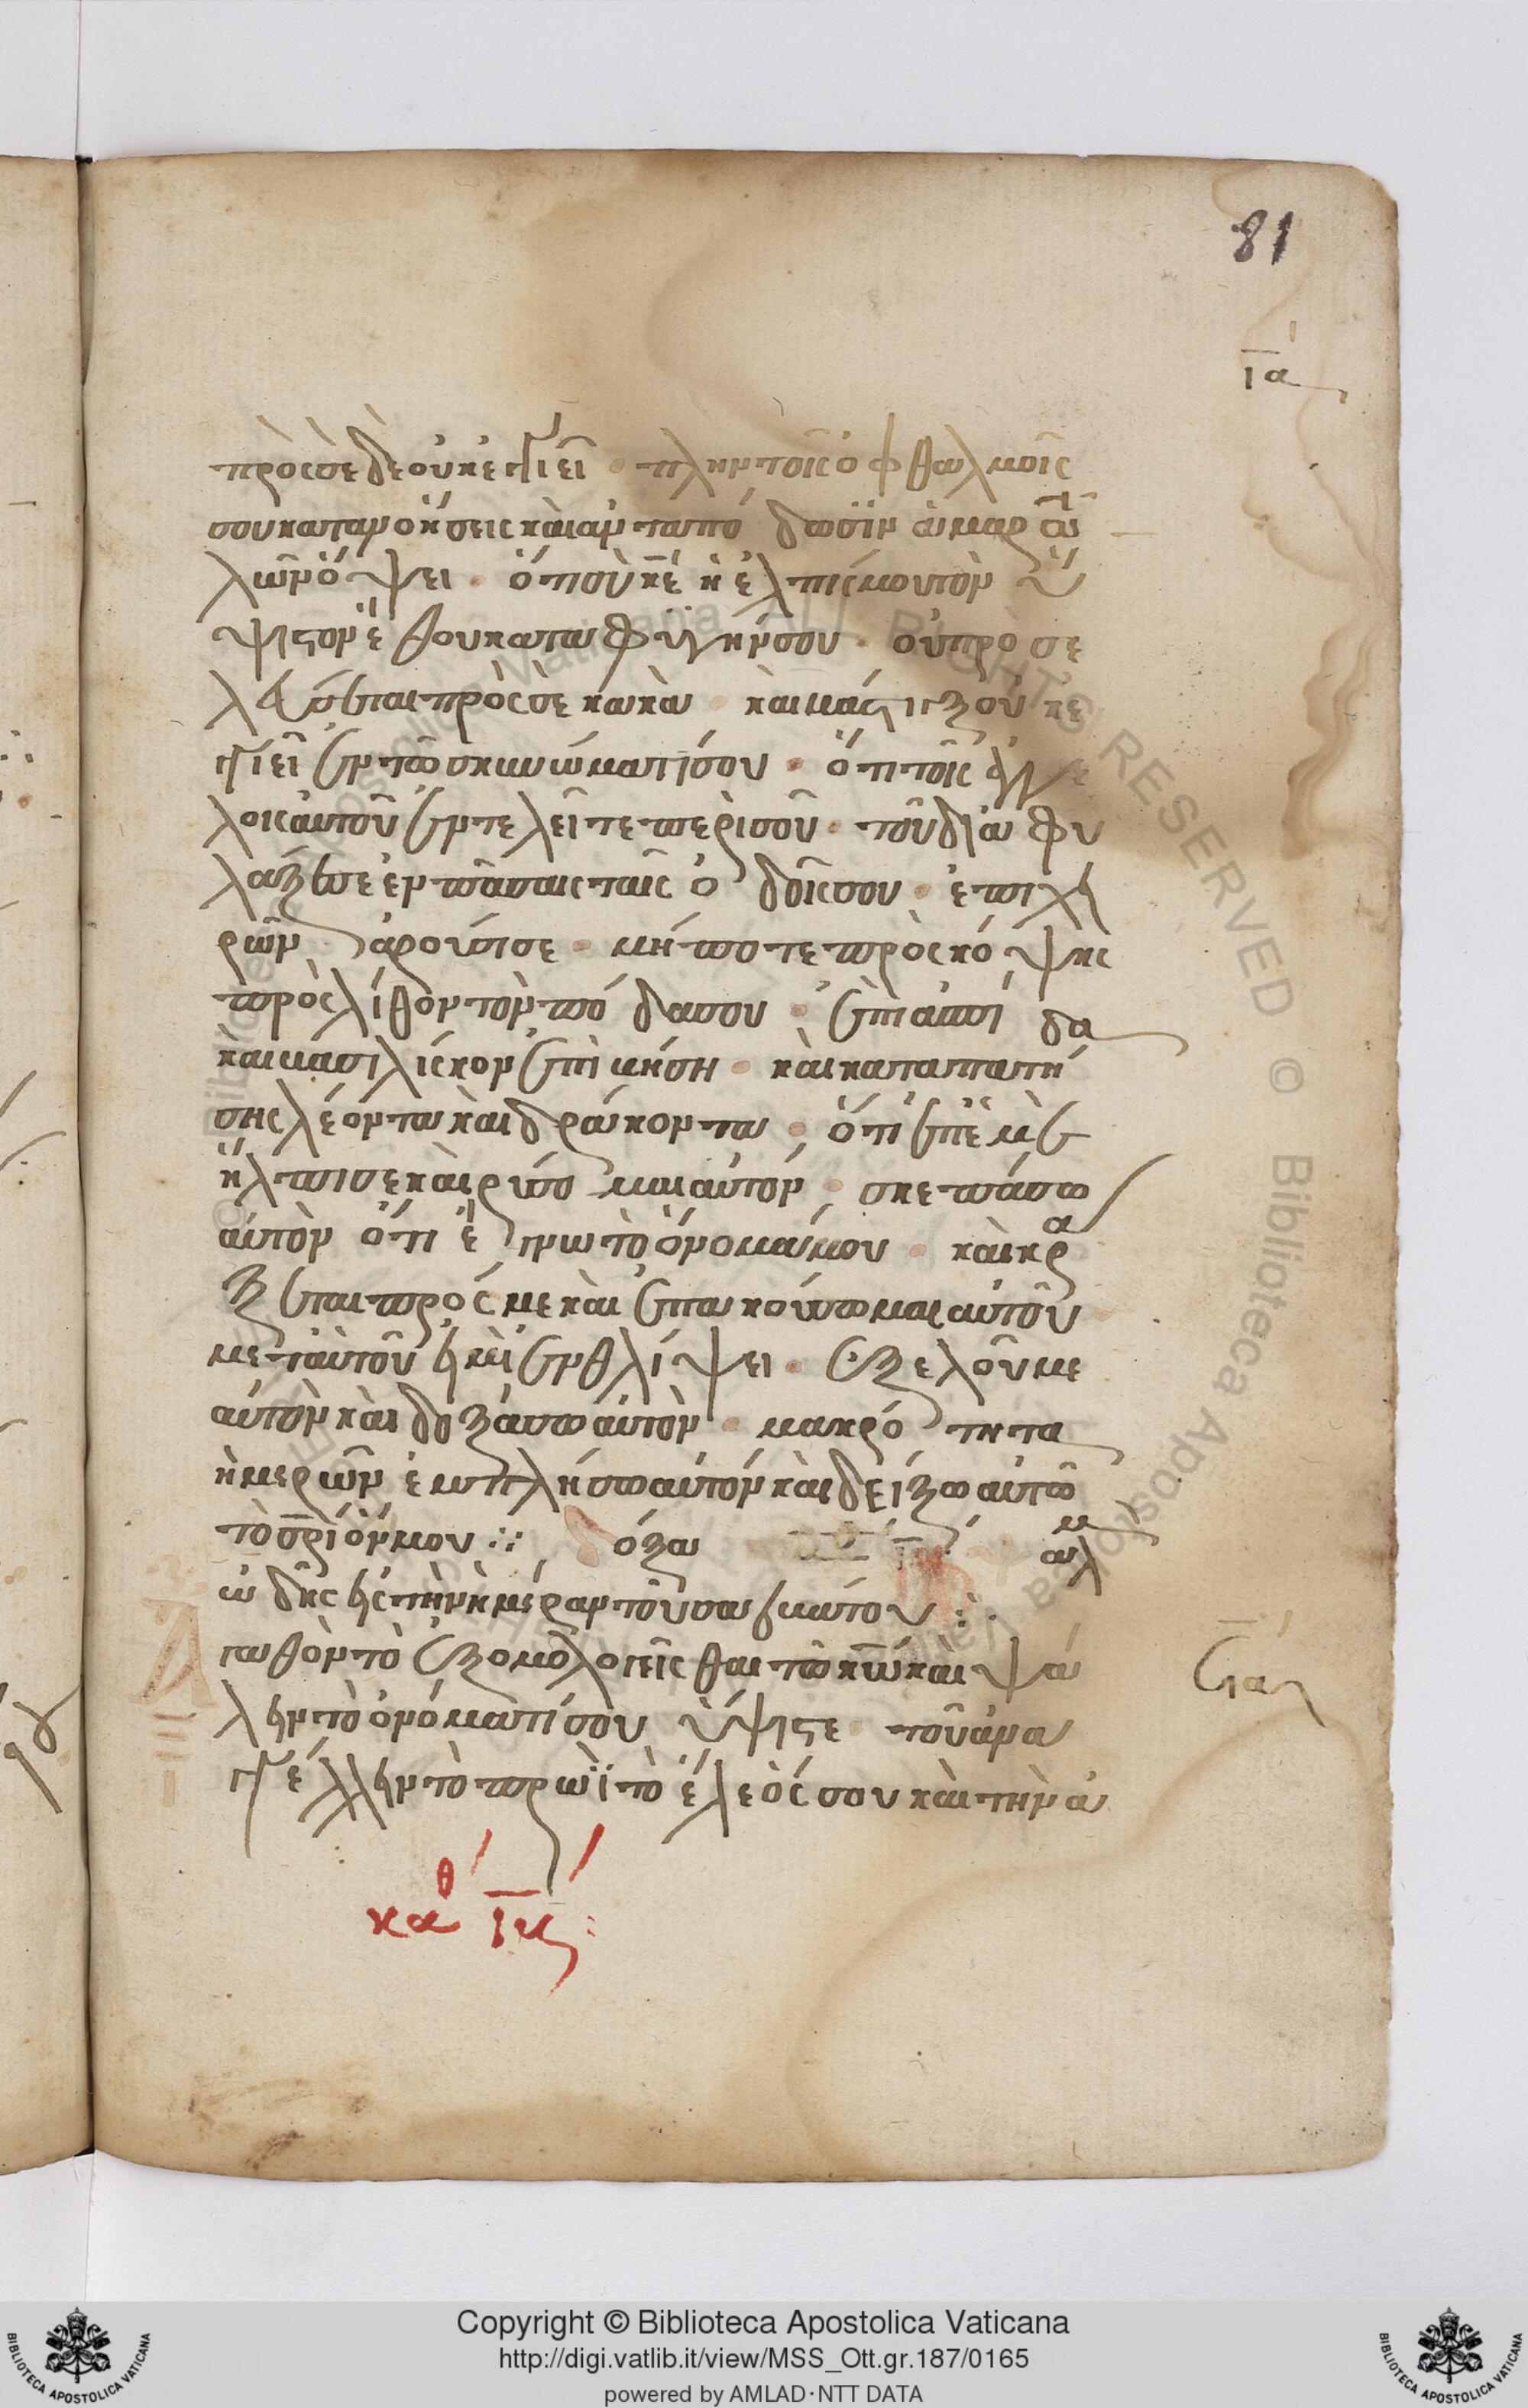 81
ια
πρὸς σὲ δὲ οὐκ ἐγγιεῖ · πλὴν τοῖς ὀφθαλμοῖς
σου κατανοήσεις καὶ ἀνταπόδωσϊν ἁμαρτω
λῶν ὄψει · ὅτι σὺ κε ἡ ἐλπίς μου τὸν ὕ
ψιστον ἔθου καταφϋγήν σου · οὐ προσε
λεύσεται πρὸς σὲ κακὰ · καὶ μάστιξ οὐκ ἐ
γγιεῖ ἐν τῶ σκηνώματί σου · ὅτι τοῖς ἀγγε
λοις αὐτοῦ ἐντελεῖτε περὶ σοῦ · τοῦ διαφυ
λάξαι σε ἐν πάσαις ταῖς ὁδοῖς σου · ἐπι χει
ρῶν ἀροῦσί σε · μήποτε προσκόψης
πρὸς λίθον τὸν πόδα σου · ἐπὶ ἀσπίδα
καὶ βασιλίσκον ἐπιβήση · καὶ καταπατή
σης λέοντα καὶ δράκοντα · ὅτι ἐπ' ἐμὲ
ἤλπισε καὶ ρύσομαι αὐτόν · σκεπάσω
αὐτὸν ὅτι ἔγνω τὸ ὄνομά μου · καὶ κρα
ξεται πρός με καὶ ἐπακούσωμαι αὐτοῦ
μετ' αὐτοῦ εἰμὶ ἐν θλίψει · ἐξελοῦμε
αὐτὸν καὶ δοξάσω αὐτὸν · μακρότητα
ἡμερῶν ἐμπλήσω αὐτὸν καὶ δείξω αὐτῶ
τὸ σριόν μου ⁘ δόξα αλ
ὠδῆς εἰς τὴν ἡμέραν τοῦ σαββάτου ⁘
Ἀγαθὸν τὸ ἐξομολογεῖσθαι τῶ κω καὶ ψά
λλειν τὸ ὀνόματί σου ὕψιστε · τοῦ ἀνα
γγέλλειν τὸ πρωῒ τὸ ἔλεός σου καὶ τὴν ἀ
Copyright © Biblioteca Apostolica Vaticana
http://digi.vatlib.it/view/MSS_Ott.gr.187/0165
powered by AMLAD·NTT DATA